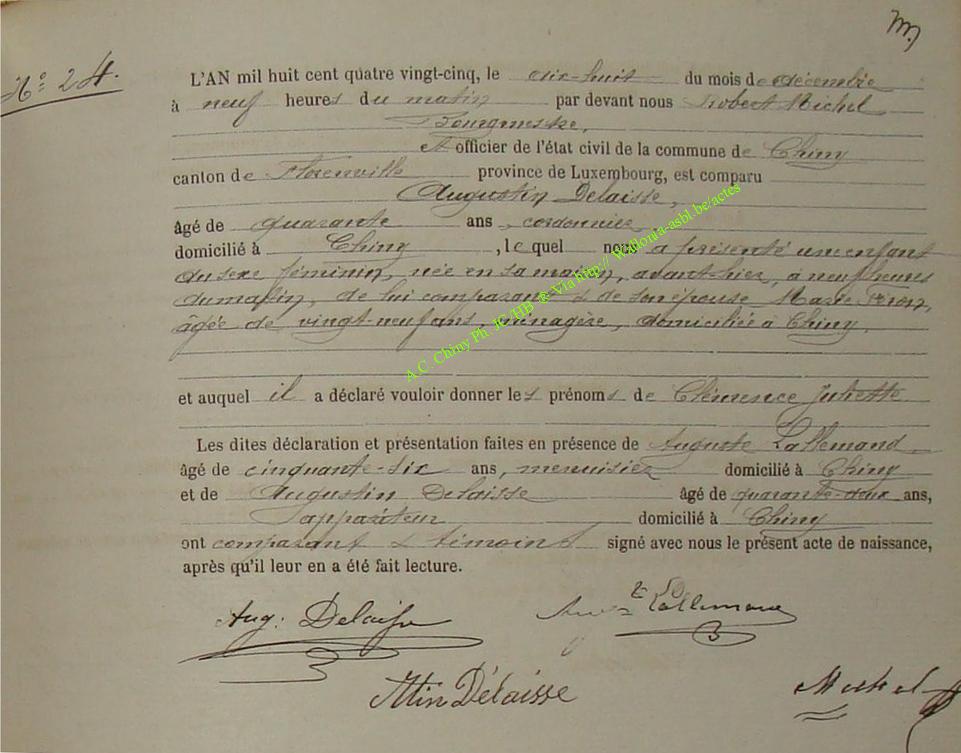 N° 24.
L'AN mil huit cent quatre vingt-cinq, le dix-huit du mois de décembre
à neuf heures du matin par devant nous Robert Michel
Bourgmestre,
officier de l'état civil de la commune de Chiny
canton de Florenville province de Luxembourg, est comparu
Augustin Delaisse,
âgé de quarante ans, cordonnier
domicilié à Chiny, lequel nous a présenté un enfant
du sexe féminin, née en sa maison, avant hier, à neuf heures
du matin, de lui comparant & de son épouse Marie
âgée de vingt-neuf ans, ménagère, domiciliée à Chiny,
et auquel il a déclaré vouloir donner les prénoms de Clémence Juliette
Les dites déclaration et présentation faites en présence de Auguste Lallemand
âgé de cinquante-six ans, menuisier domicilié à Chiny
et de Augustin Delaisse âgé de quarante-deux ans,
appariteur domicilié à Chiny
ont comparant & témoins signé avec nous le présent acte de naissance,
après qu'il leur en a été fait lecture.
Aug: Delaisse Lallemand
Atin Délaisse Michel
A.C. Chiny Ph. JC HB & Via http// Wallonia-asbl.be/actes